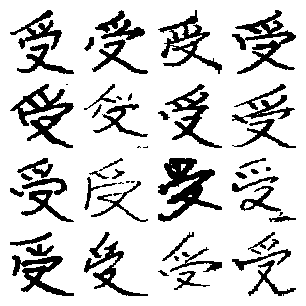 受受受受
受受受受
受受受受
受受受受